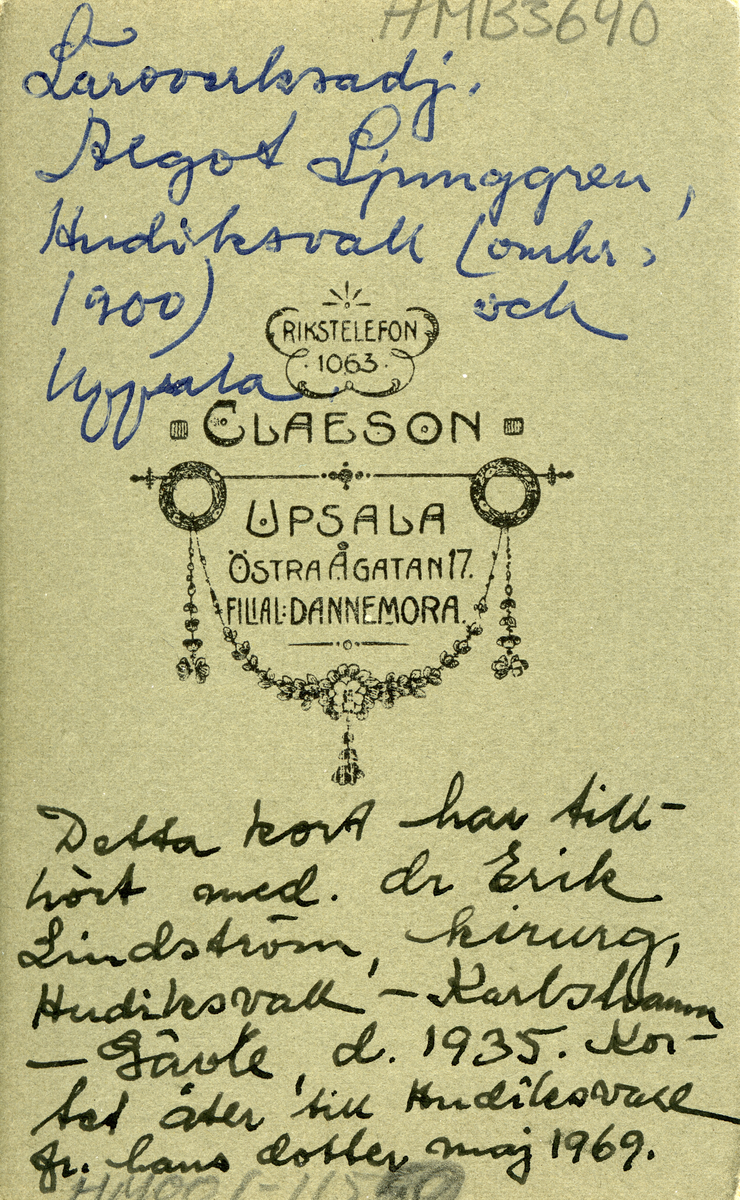 HMB3690
Läroverksadj.
Algot Ljunggren,
Hudiksvall (omkr.
1900) och
Uppsala
RIKSTELEFON
1063
CLAESON
UPSALA
ÖSTRA ÅGATAN 17.
FILIAL: DANNEMORA.
Detta kort har till-
hört med. dr Erik
Lindström, kirurg,
Hudiksvall – Karlshamn
– Gävle, d. 1935. Kor-
tet åter till Hudiksvall
fr. hans dotter maj 1969.